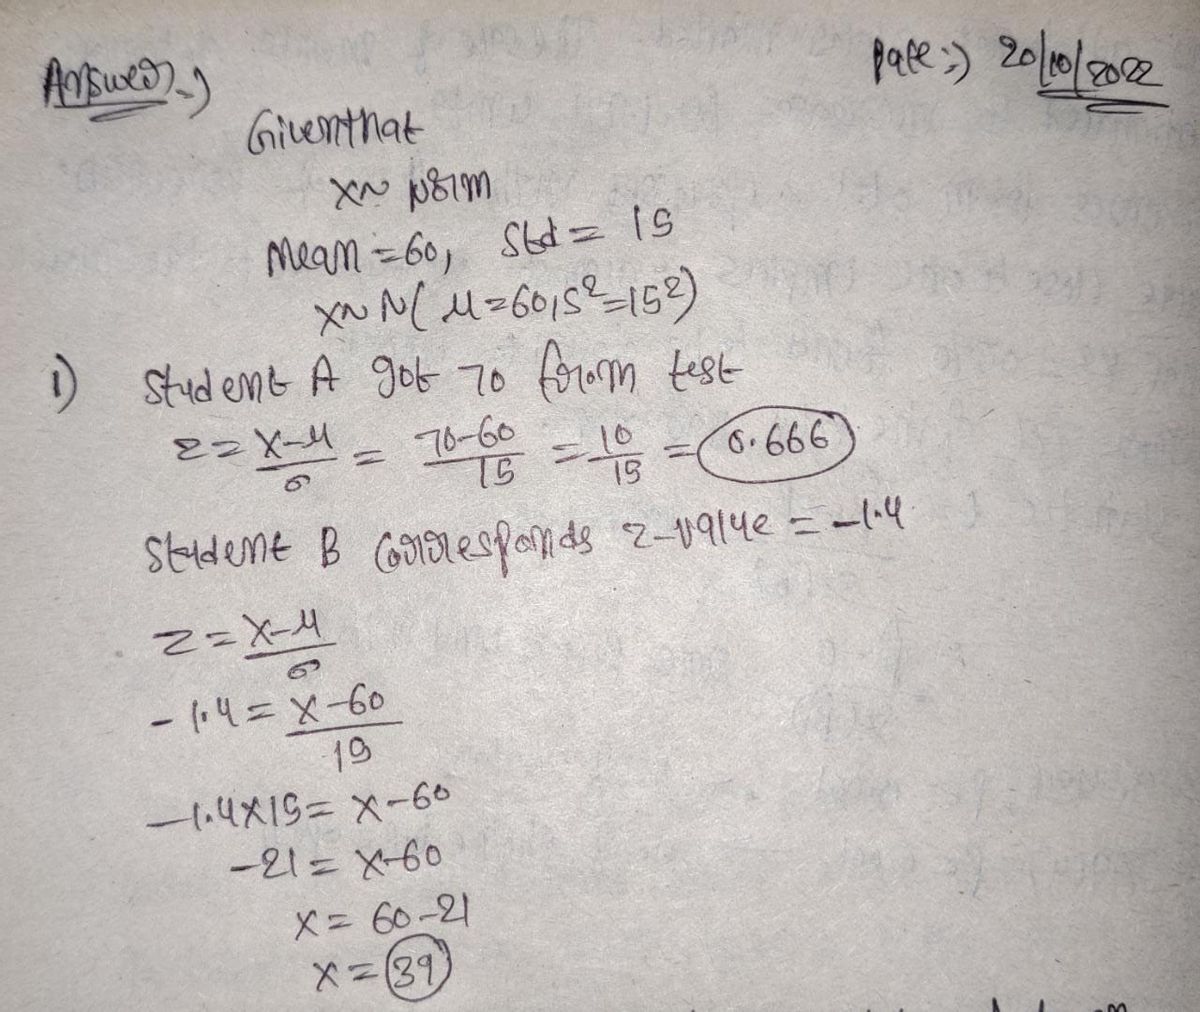 Answer :-)
Date :-) 20/10/2022
Given that
X~ Norm
Mean = 60, Std = 15
X~ N( μ=60, S²=15²)
1) Student A got 70 from test
Z = X-μ/σ = 70-60/15 = 10/15 = 0.666
Student B corresponds z-value = -1.4
Z = X-μ/σ
-1.4 = X-60/15
-1.4×15 = X-60
-21 = X-60
X = 60-21
X = 39